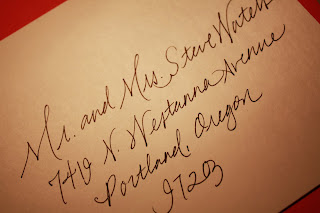 Mr. and Mrs. Steve
7410 N. Westanna Avenue
Portland, Oregon
97203